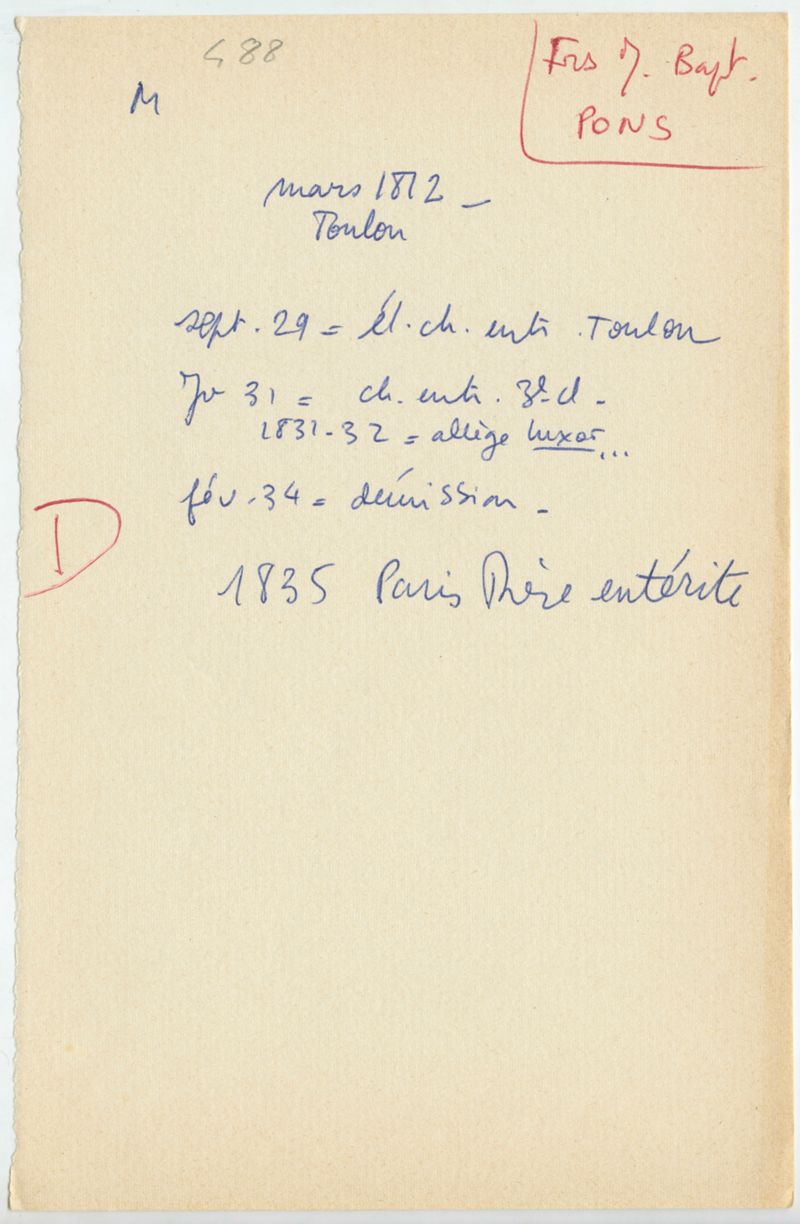 488
M
Frs J. Bapt.
PONS
mars 1812 _
Toulon
sept. 29 = él. ch. entr. Toulon
Jv 31 = ch. entr. 3e cl _
1831-32 = allège Luxor...
fév. 34 = démission _
D
1835 Paris Thèse entérite